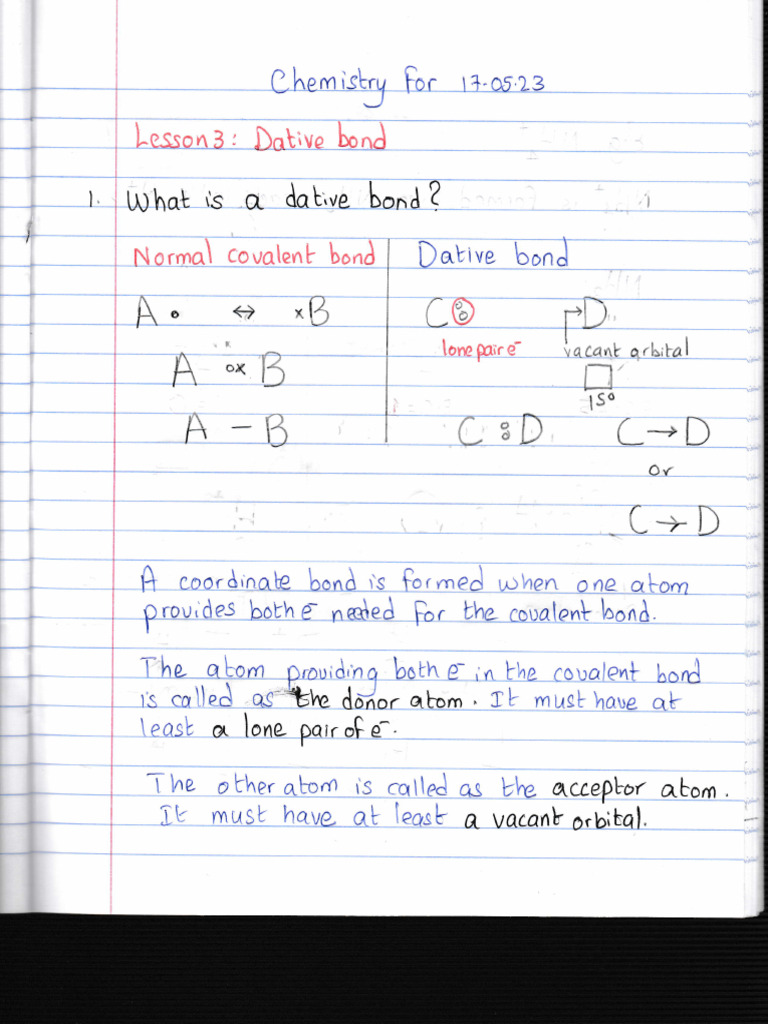 Chemistry for 17.05.23
Lesson 3: Dative bond
1. What is a dative bond?
Normal covalent bond
A • ↔ ×B
A o× B
A – B
Dative bond
C 8 D
lone pair e⁻ vacant orbital
1s⁰
C 8 D C → D
or
C → D
A coordinate bond is formed when one atom
provides both e⁻ needed for the covalent bond.
The atom providing both e⁻ in the covalent bond
is called as the donor atom. It must have at
least a lone pair of e⁻.
The other atom is called as the acceptor atom.
It must have at least a vacant orbital.